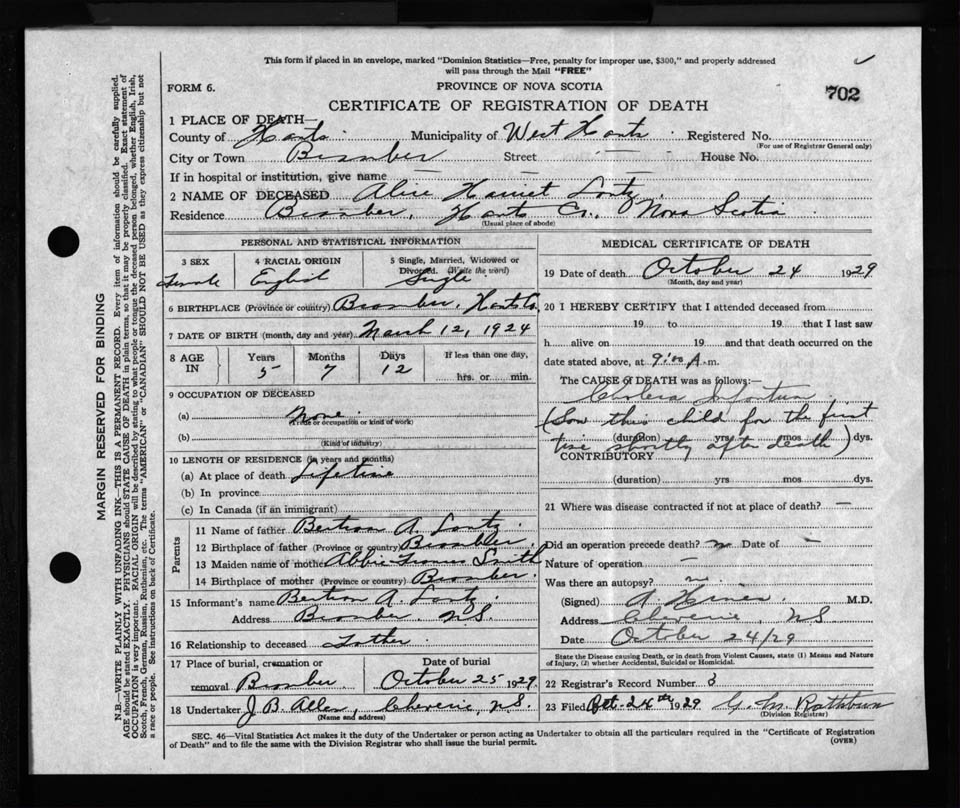 This form if placed in an envelope, marked "Dominion Statistics—Free, penalty for improper use, $300," and properly addressed
will pass through the Mail "FREE"
FORM 6.
PROVINCE OF NOVA SCOTIA
702
CERTIFICATE OF REGISTRATION OF DEATH
1 PLACE OF DEATH—
County of Hants Municipality of West Hants Registered No.
(For use of Registrar General only)
City or Town Bramber Street — House No.
If in hospital or institution, give name — —
2 NAME OF DECEASED Alice Harriet Lontz
Residence Bramber, Hants Co., Nova Scotia
(Usual place of abode)
PERSONAL AND STATISTICAL INFORMATION
3 SEX 4 RACIAL ORIGIN 5 Single, Married, Widowed or
Divorced. (Write the word)
Female English Single
6 BIRTHPLACE (Province or country) Bramber, Hants Co,
7 DATE OF BIRTH (month, day and year) March 12, 1924
8 AGE IN Years Months Days If less than one day,
5 7 12 hrs. or min.
9 OCCUPATION OF DECEASED
(a) None
(Trade or occupation or kind of work)
(b)
(Kind of industry)
10 LENGTH OF RESIDENCE (in years and months)
(a) At place of death Lifetime
(b) In province
(c) In Canada (if an immigrant)
Parents
11 Name of father Bertram A. Lontz
12 Birthplace of father (Province or country) Bramber
13 Maiden name of mother Abbie Smith
14 Birthplace of mother (Province or country) Bramber
15 Informant's name Bertram A. Lontz
Address Bramber N.S.
16 Relationship to deceased Father
17 Place of burial, cremation or Date of burial
removal Bramber October 25 1929
18 Undertaker J. B. Allen, Cheverie, N.S.
(Name and address)
MEDICAL CERTIFICATE OF DEATH
19 Date of death October 24 1929
(Month, day and year)
20 I HEREBY CERTIFY that I attended deceased from
19 to 19 that I last saw
h alive on 19 and that death occurred on the
date stated above, at 9:00 A.m.
The CAUSE of DEATH was as follows:—
Cholera Infantum
(Saw this child for the first
(duration) yrs mos dys.
time shortly after death)
CONTRIBUTORY
(duration) yrs mos dys.
21 Where was disease contracted if not at place of death? —
Did an operation precede death? no Date of —
Nature of operation —
Was there an autopsy? no
(Signed) A. M.D.
Address Cheverie, N.S
Date October 24/29
State the Disease causing Death, or in death from Violent Causes, state (1) Means and Nature
of Injury, (2) whether Accidental, Suicidal or Homicidal.
22 Registrar's Record Number 3
23 Filed Oct. 24th 1929 G. M. Rathbun
(Division Registrar)
SEC. 46—Vital Statistics Act makes it the duty of the Undertaker or person acting as Undertaker to obtain all the particulars required in the "Certificate of Registration
of Death" and to file the same with the Division Registrar who shall issue the burial permit.
(OVER)
MARGIN RESERVED FOR BINDING
N.B.—WRITE PLAINLY WITH UNFADING INK—THIS IS A PERMANENT RECORD. Every item of information should be carefully supplied.
AGE should be stated EXACTLY. PHYSICIANS should STATE CAUSE OF DEATH in plain terms, so that it may be properly classified. Exact statement of
OCCUPATION is very important. RACIAL ORIGIN will be described by stating to what people or tongue the deceased person belonged, whether English, Irish,
Scotch, French, German, Russian, Ruthenian, etc. The terms "AMERICAN" or "CANADIAN" SHOULD NOT BE USED as they express citizenship but not
a race or people. See instructions on back of Certificate.